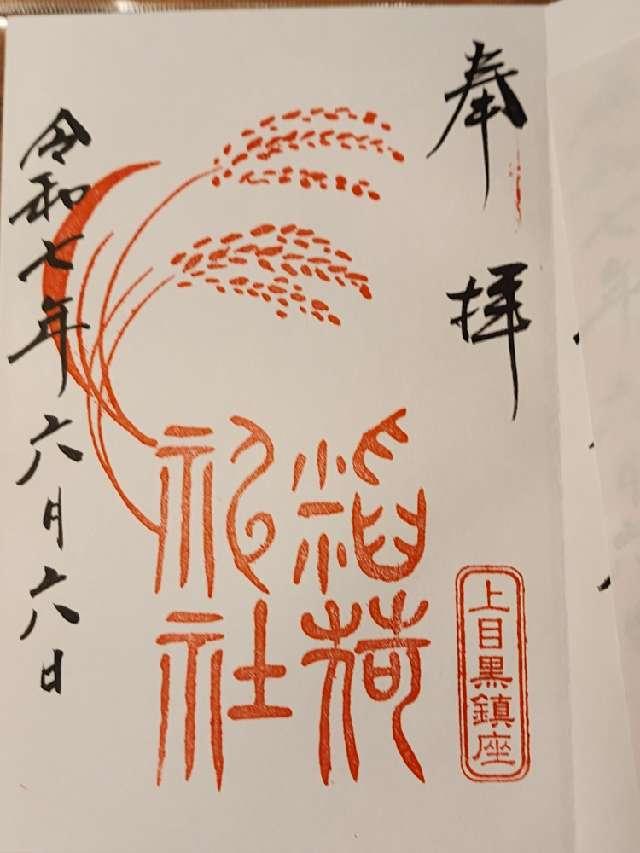 奉拝
上目黒鎮座
稲荷
神社
令和七年六月六日